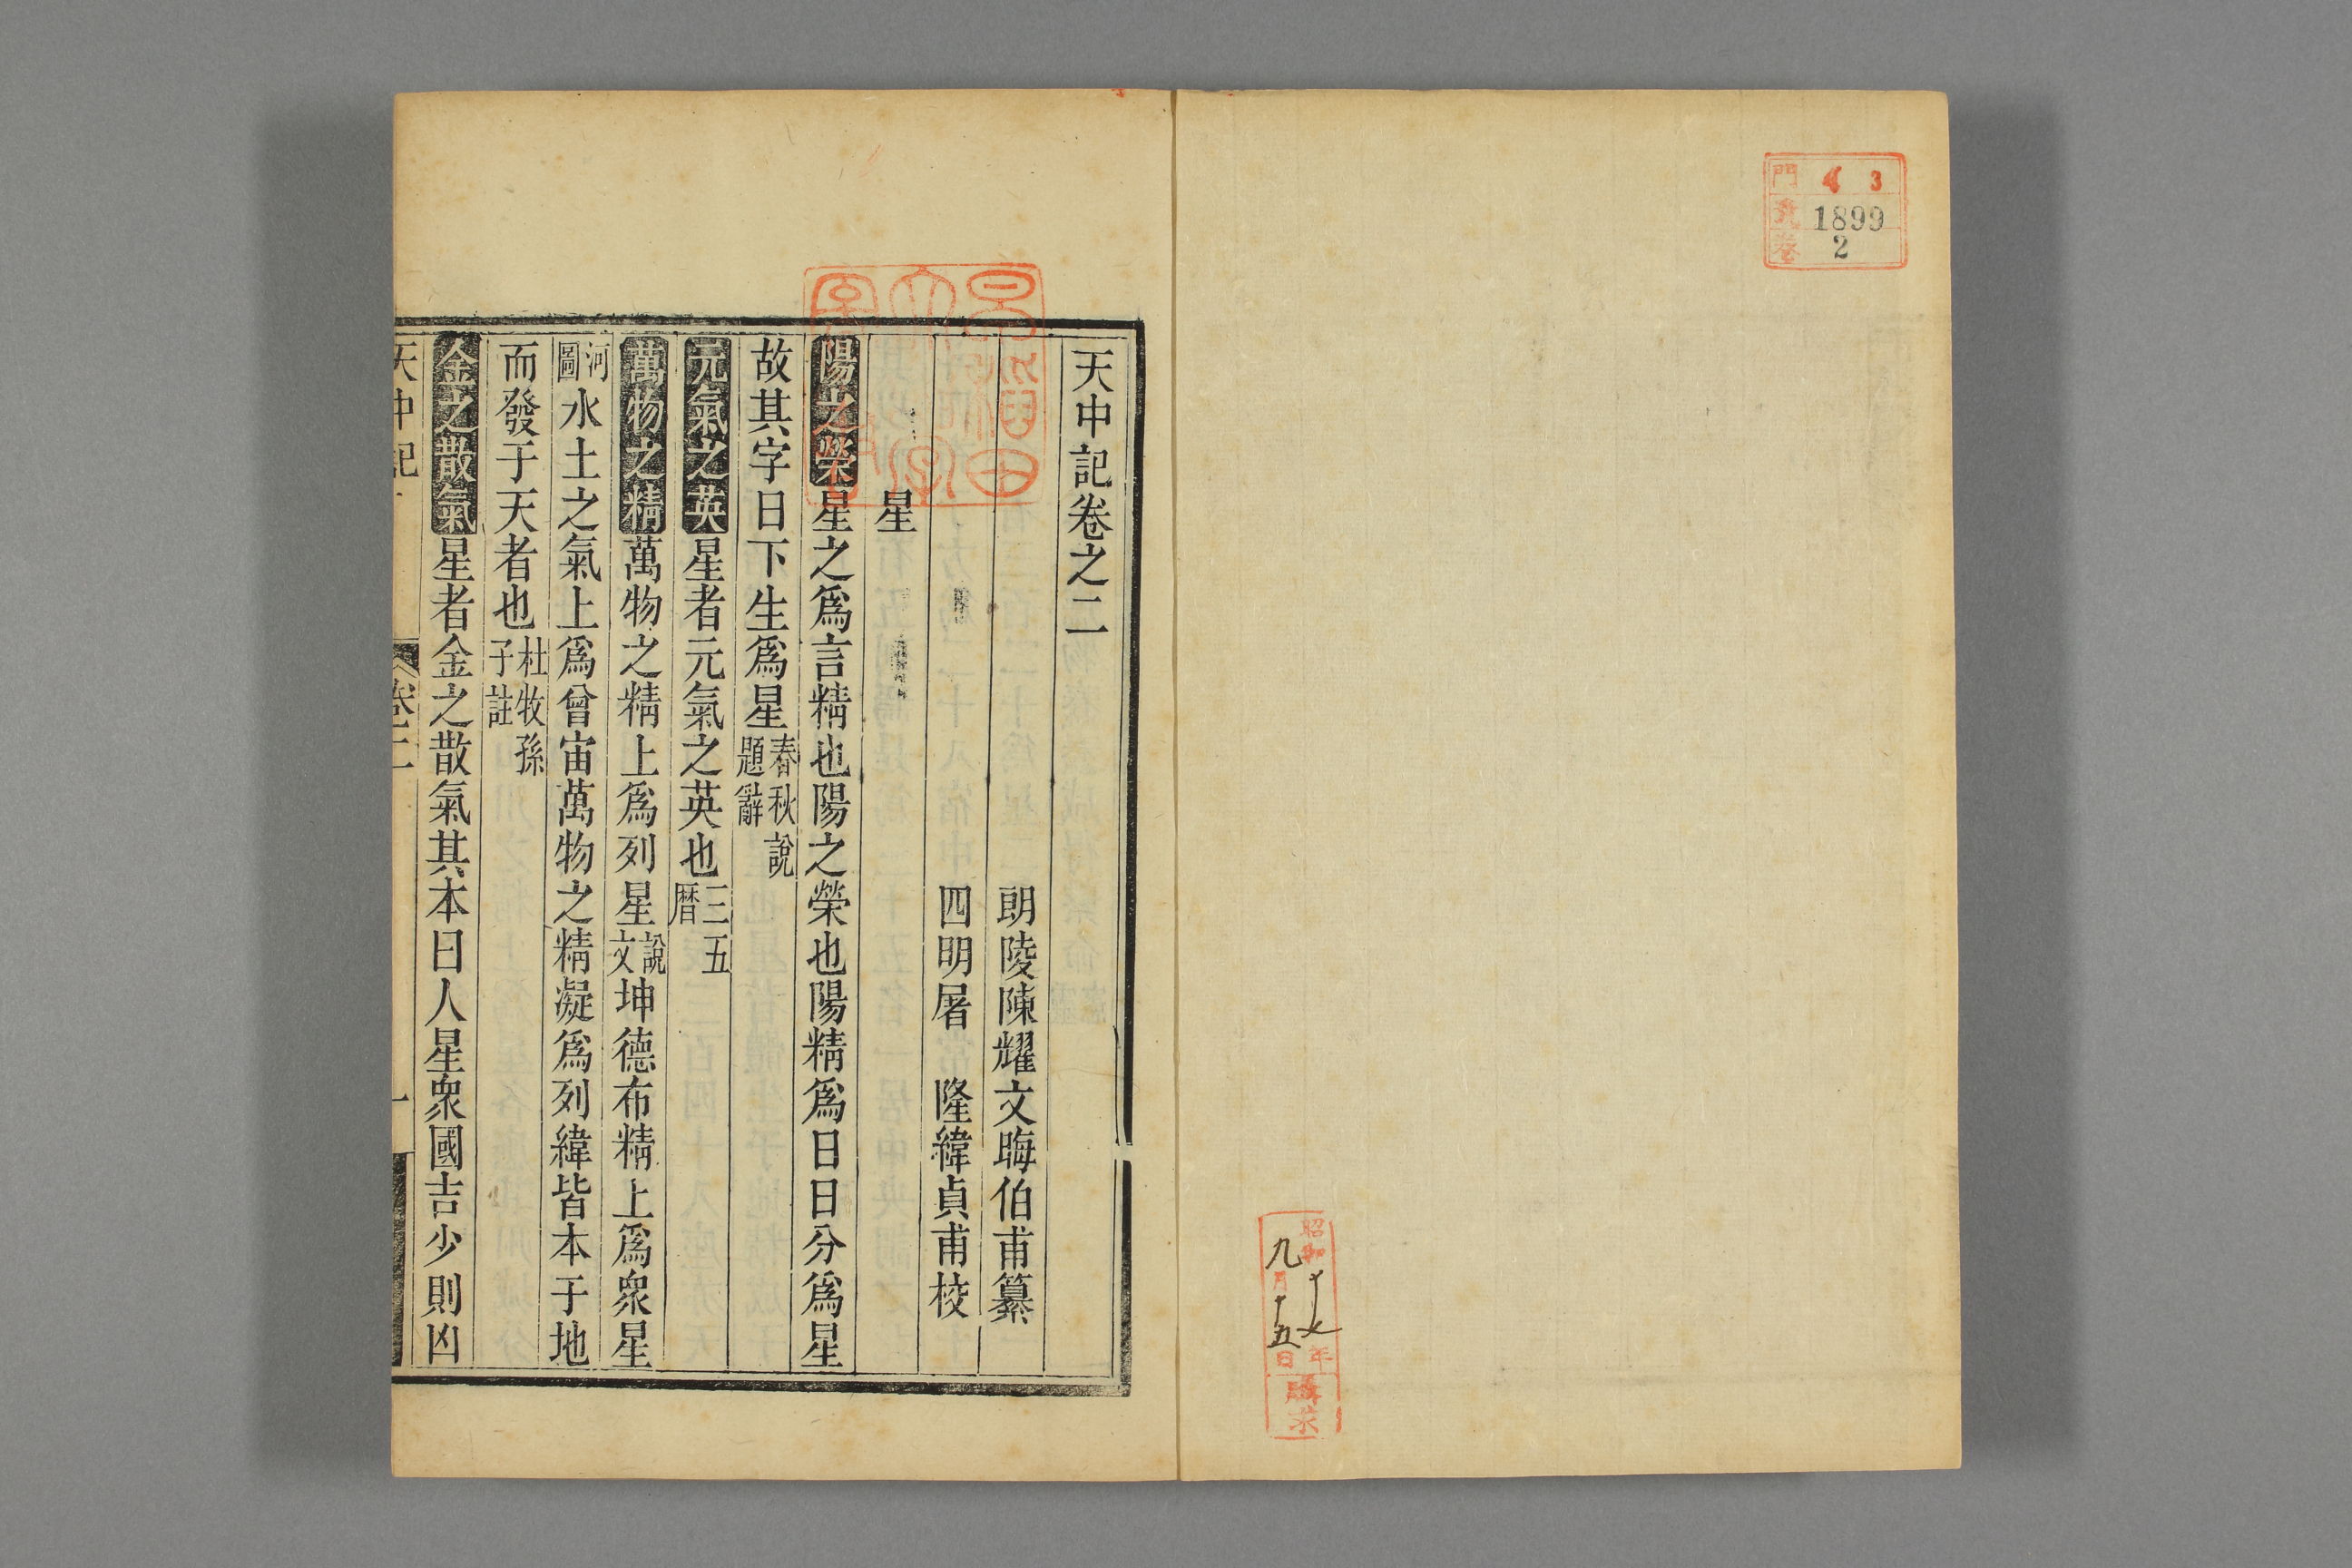 門 3
號 1899
卷 2
昭和十七年
九月十五日
購求
天中記卷之二
朗陵陳耀文晦伯甫纂
四明屠　隆緯貞甫校
星
陽之榮星之爲言精也陽之榮也陽精爲日日分爲星
故其字日下生爲星春秋說題辭
元氣之英星者元氣之英也三五曆
萬物之精萬物之精上爲列星說文坤德布精上爲衆星
河圖水土之氣上爲曾宙萬物之精凝爲列緯皆本于地
而發于天者也杜牧孫子註
金之散氣星者金之散氣其本曰人星衆國吉少則凶
天中記
卷二
一